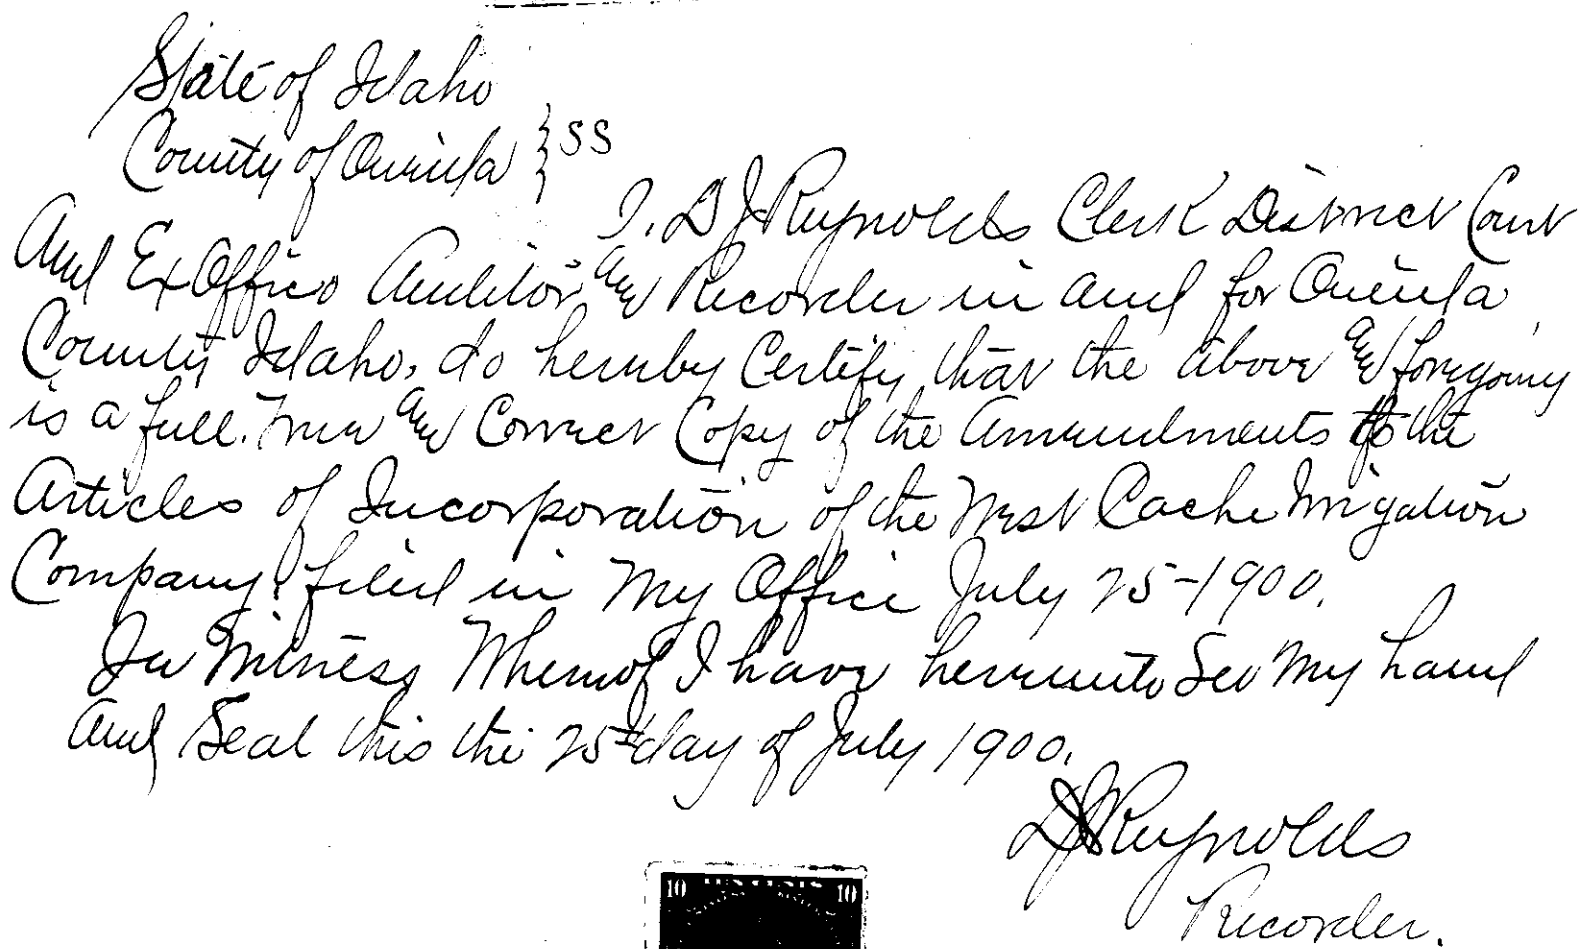 State of Idaho
County of Oneida } SS
I. D J Reynolds Clerk District Court
And Ex Officio Auditor and Recorder in and for Oneida
County Idaho, do hereby Certify that the above and foregoing
is a full. True and Correct Copy of the Amendments to the
Articles of Incorporation of the West Cache Irrigation
Company. filed in My Office July 25-1900.
In Witness Whereof I have hereunto Set My hand
And Seal this the 25th day of July 1900.
D J Reynolds
Recorder.
10 TEN CENTS 10